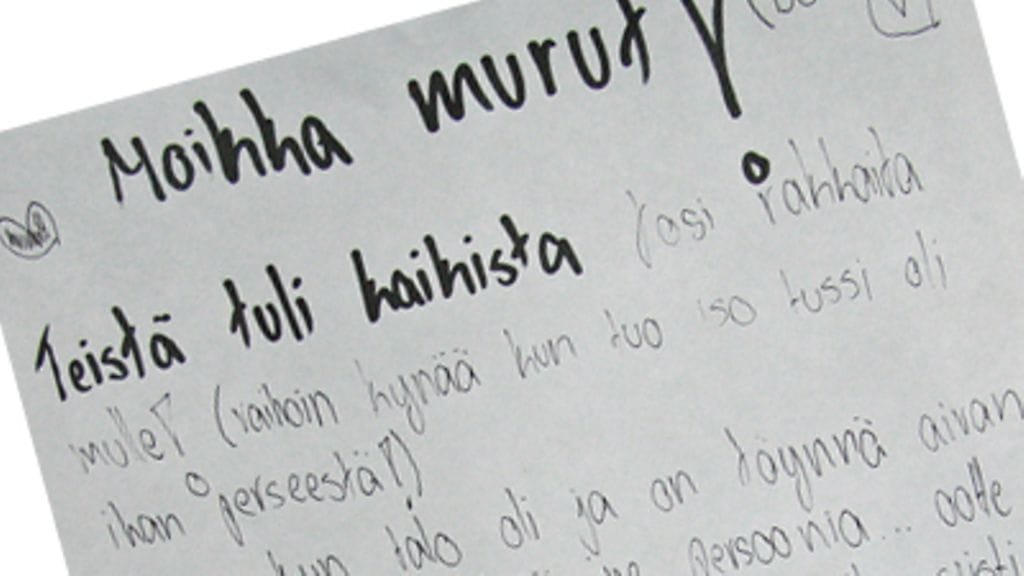 Moikka murut
Teistä tuli kaikista tosi rakkaita
mulle! (vaihoin kynää kun tuo iso tussi oli
ihan perseestä!)
kun talo oli ja on täynnä aivan
persoonia... ootte